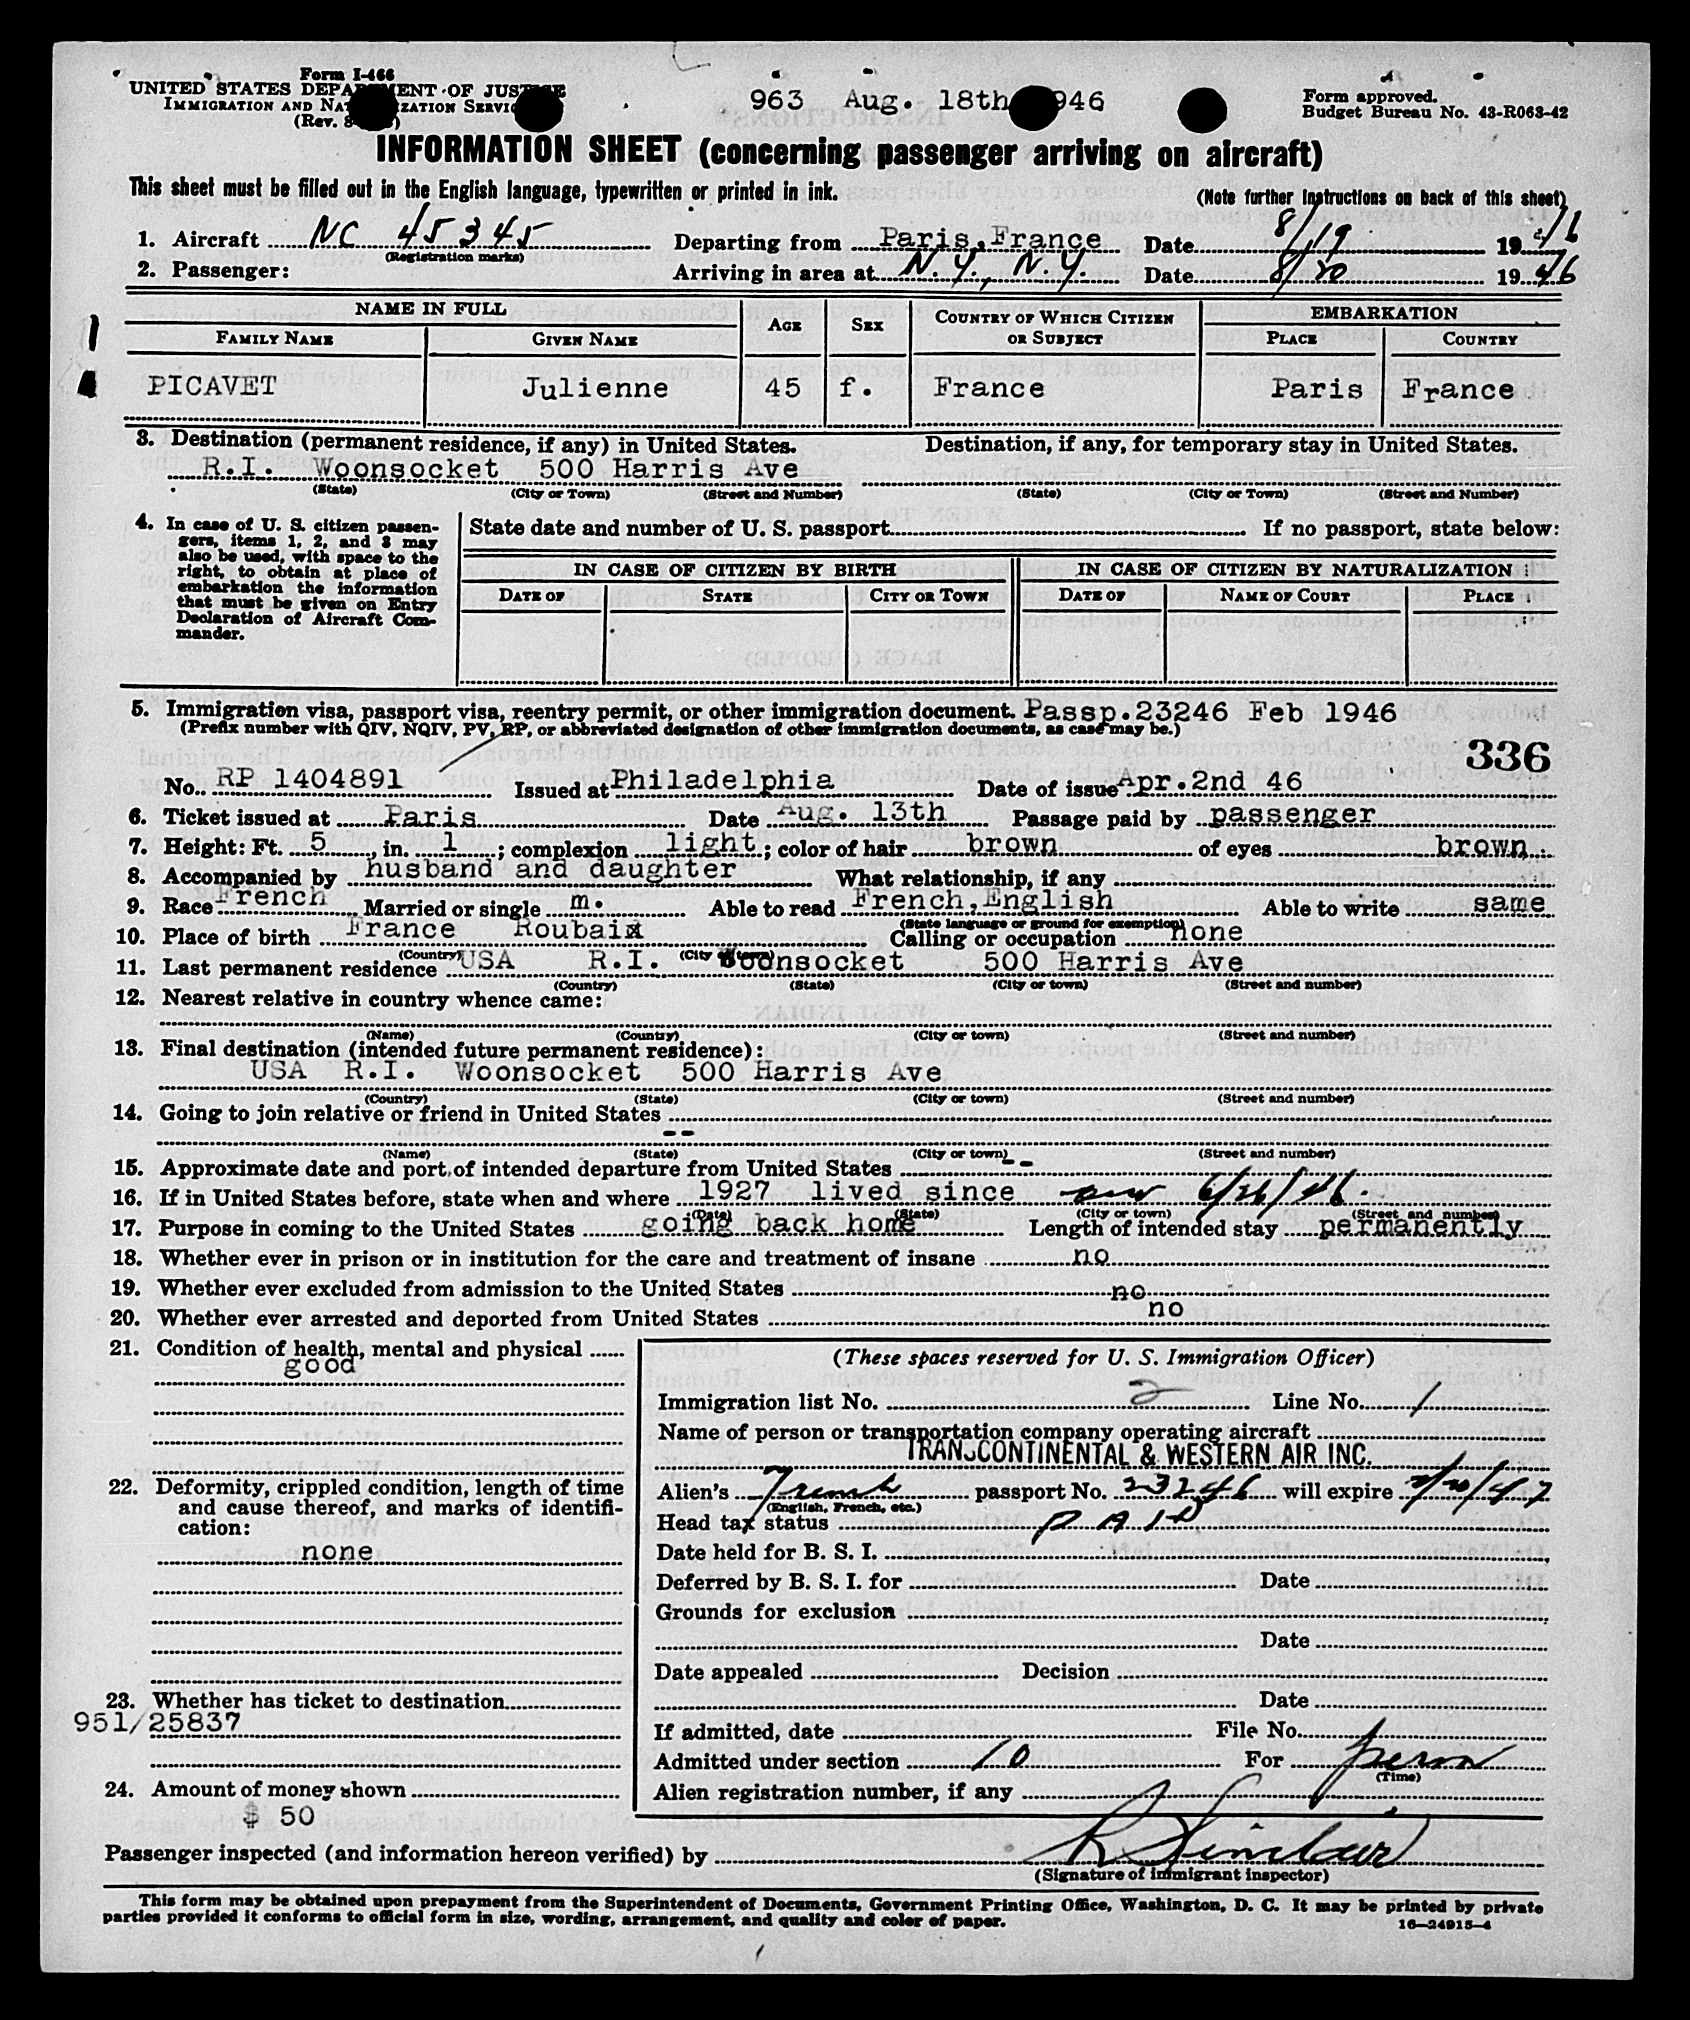 Form I-466
UNITED STATES DEPARTMENT OF JUSTICE
IMMIGRATION AND NATURALIZATION SERVICE
(Rev.
963 Aug. 18th 1946
Form approved.
Budget Bureau No. 43-R063-42
INFORMATION SHEET (concerning passenger arriving on aircraft)
This sheet must be filled out in the English language, typewritten or printed in ink.
(Note further instructions on back of this sheet)
1. Aircraft NC 45345 Departing from Paris, France Date 8/19 1946
(Registration marks)
2. Passenger: Arriving in area at N.Y., N.Y. Date 8/20 1946
NAME IN FULL
FAMILY NAME GIVEN NAME AGE SEX COUNTRY OF WHICH CITIZEN OR SUBJECT EMBARKATION PLACE COUNTRY
PICAVET Julienne 45 f. France Paris France
3. Destination (permanent residence, if any) in United States. Destination, if any, for temporary stay in United States.
R.I. Woonsocket 500 Harris Ave
(State) (City or Town) (Street and Number) (State) (City or Town) (Street and Number)
4. In case of U. S. citizen passen-
gers, items 1, 2, and 3 may
also be used, with space to the
right, to obtain at place of
embarkation the information
that must be given on Entry
Declaration of Aircraft Com-
mander.
State date and number of U. S. passport If no passport, state below:
IN CASE OF CITIZEN BY BIRTH IN CASE OF CITIZEN BY NATURALIZATION
DATE OF STATE CITY OR TOWN DATE OF NAME OF COURT PLACE
5. Immigration visa, passport visa, reentry permit, or other immigration document. Passp.23246 Feb 1946
(Prefix number with QIV, NQIV, PV, RP, or abbreviated designation of other immigration documents, as case may be.)
336
No. RP 1404891 Issued at Philadelphia Date of issue Apr.2nd 46
6. Ticket issued at Paris Date Aug. 13th Passage paid by passenger
7. Height: Ft. 5, in. 1; complexion light; color of hair brown of eyes brown
8. Accompanied by husband and daughter What relationship, if any
9. Race French Married or single m. Able to read French,English Able to write same
(State language or ground for exemption)
10. Place of birth France Roubaix Calling or occupation none
(Country) (City or town)
11. Last permanent residence USA R.I. Woonsocket 500 Harris Ave
(Country) (State) (City or town) (Street and number)
12. Nearest relative in country whence came:
(Name) (Country) (City or town) (Street and number)
13. Final destination (intended future permanent residence):
USA R.I. Woonsocket 500 Harris Ave
(Country) (State) (City or town) (Street and number)
14. Going to join relative or friend in United States
--
(Name) (State) (City or town) (Street and number)
15. Approximate date and port of intended departure from United States --
16. If in United States before, state when and where 1927 lived since 6/26/46.
(Date) (State) (City or town) (Street and number)
17. Purpose in coming to the United States going back home Length of intended stay permanently
18. Whether ever in prison or in institution for the care and treatment of insane no
19. Whether ever excluded from admission to the United States no
20. Whether ever arrested and deported from United States no
21. Condition of health, mental and physical
good
22. Deformity, crippled condition, length of time
and cause thereof, and marks of identifi-
cation:
none
23. Whether has ticket to destination
951/25837
24. Amount of money shown
$ 50
(These spaces reserved for U. S. Immigration Officer)
Immigration list No. 2 Line No. 1
Name of person or transportation company operating aircraft
TRANSCONTINENTAL & WESTERN AIR INC.
Alien's French passport No. 23246 will expire 2/20/47
(English, French, etc.)
Head tax status PAID
Date held for B. S. I.
Deferred by B. S. I. for Date
Grounds for exclusion
Date
Date appealed Decision
Date
If admitted, date File No.
Admitted under section 10 For perm
(Time)
Alien registration number, if any
Passenger inspected (and information hereon verified) by R Sinclair
(Signature of immigrant inspector)
This form may be obtained upon prepayment from the Superintendent of Documents, Government Printing Office, Washington, D. C. It may be printed by private
parties provided it conforms to official form in size, wording, arrangement, and quality and color of paper.
16—24915-4